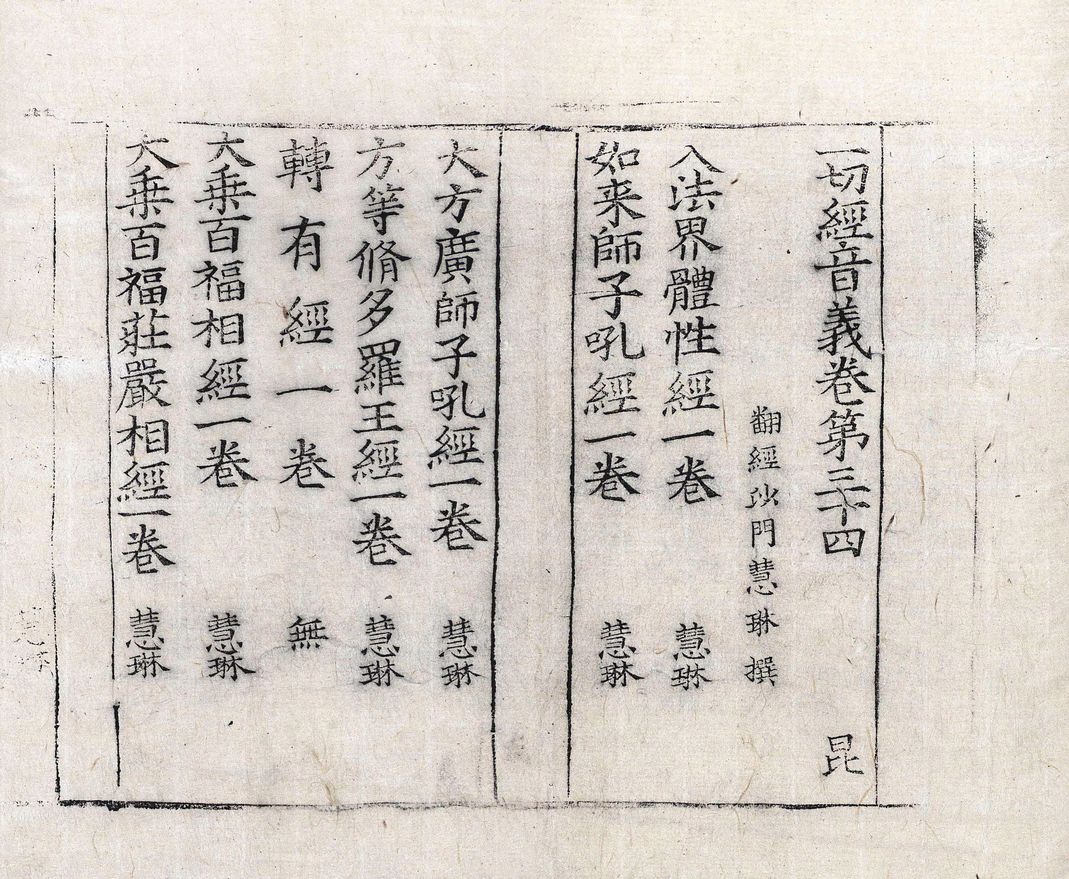 一切經音義卷第三十四 昆
翻經沙門慧琳撰
入法界體性經一卷 慧琳
如来師子吼經一卷 慧琳
大方廣師子吼經一卷 慧琳
方等脩多羅王經一卷 慧琳
轉有經一卷 無
大乘百福相經一卷 慧琳
大乘百福莊嚴相經一卷 慧琳